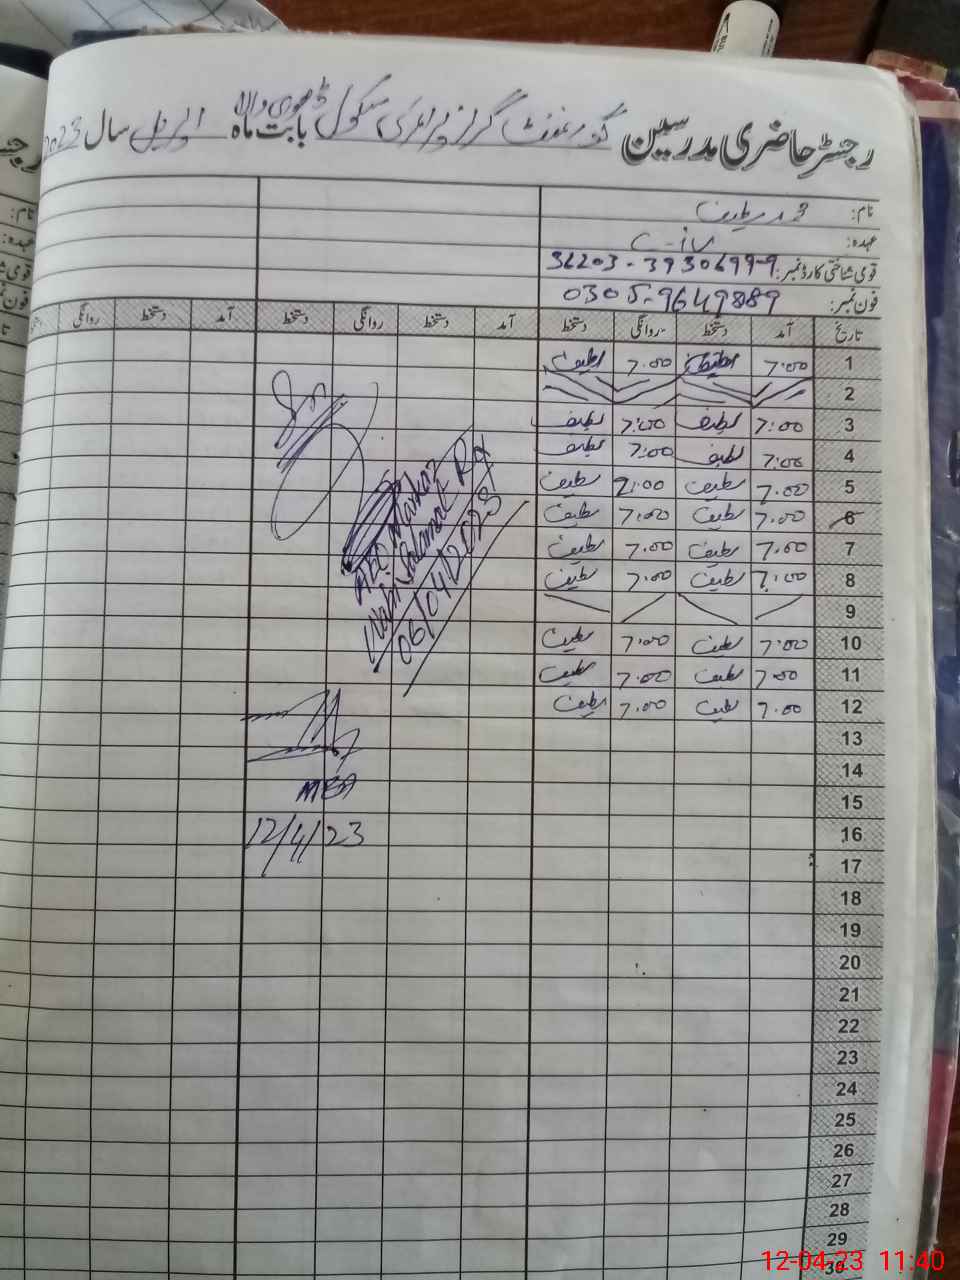 رجسٹر حاضری مدرسین گورنمنٹ گرلز پرائمری سکول ڈھوری والا بابت ماہ اپریل سال 2023
نام: محمد لطیف
عہدہ: C-iv
قومی شناختی کارڈ نمبر: 36203-3930699-9
فون نمبر: 0305-9649889
تاریخ آمد دستخط روانگی دستخط آمد دستخط روانگی دستخط آمد دستخط روانگی دستخط
1 7:00 لطیف 7:00 لطیف
2
3 7:00 لطیف 7:00 لطیف
4 7:00 لطیف 7:00 لطیف
5 7:00 لطیف 2:00 لطیف
6 7:00 لطیف 7:00 لطیف
7 7:00 لطیف 7:00 لطیف
8 7:00 لطیف 7:00 لطیف
9
10 7:00 لطیف 7:00 لطیف
11 7:00 لطیف 7:00 لطیف
12 7:00 لطیف 7:00 لطیف
13
14
15
16
17
18
19
20
21
22
23
24
25
26
27
28
29
30
AEO Markaz
06/04/2023
MEA
12/4/23
12-04-23 11:40